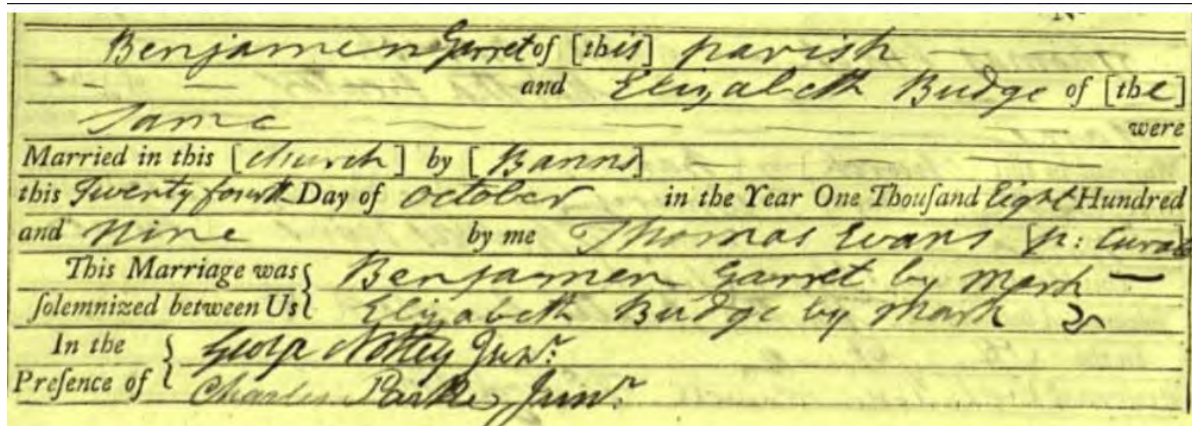 Benjamen Garret of [this] parish
and Elizabeth Budge of [the]
Same were
Married in this [church] by [Banns]
this Twenty fourth Day of October in the Year One Thouſand Eight Hundred
and Nine by me Thomas Evans [p: Curate
This Marriage was { Benjamen Garret by Mark
ſolemnized between Us { Elizabeth Budge by Mark
In the { George Nottey Junr.
Preſence of { Charles Parker Junr.